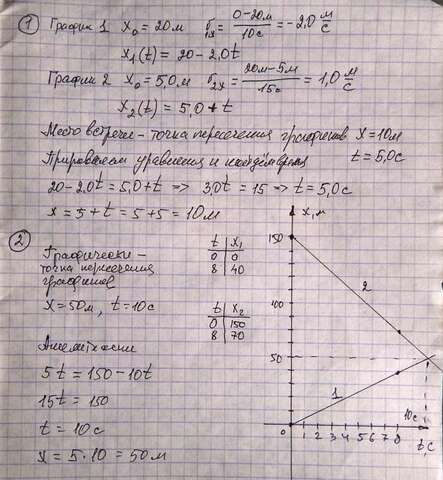 ① График 1 x₀ = 20м υ₁ₓ = (0-20м)/(10с) = -2,0 м/с
x₁(t) = 20 - 2,0t
График 2 x₀ = 5,0м υ₂ₓ = (20м-5м)/(15с) = 1,0 м/с
x₂(t) = 5,0 + t
Место встречи - точка пересечения графиков x = 10м
Приравняем уравнения и найдём время t = 5,0с
20 - 2,0t = 5,0 + t => 3,0t = 15 => t = 5,0с
x = 5 + t = 5 + 5 = 10м
②
Графически -
точка пересечения
графиков
x = 50м, t = 10с
t x₁
0 0
8 40
t x₂
0 150
8 70
5t = 150 - 10t
15t = 150
t = 10с
x = 5 · 10 = 50м
x, м
150
100
50
0
2
1
10с
1 2 3 4 5 6 7 8
t, с